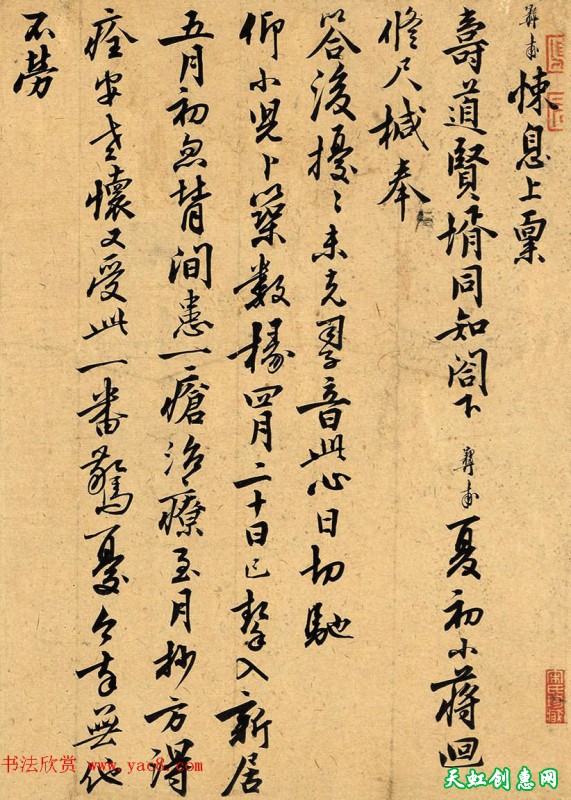 悚息上稟
壽道賢壻同知閤下 夏初小蔣迴
脩尺椷奉
答後擾〻未克嗣音此心日切馳
仰小児卜築數椽四月二十日已挈入新居
五月初忽背間患一瘡治療至月抄方得
痊安老懷又受此一番驚憂今幸無他
不勞
书法欣赏 www.yac8.com
天虹创惠网